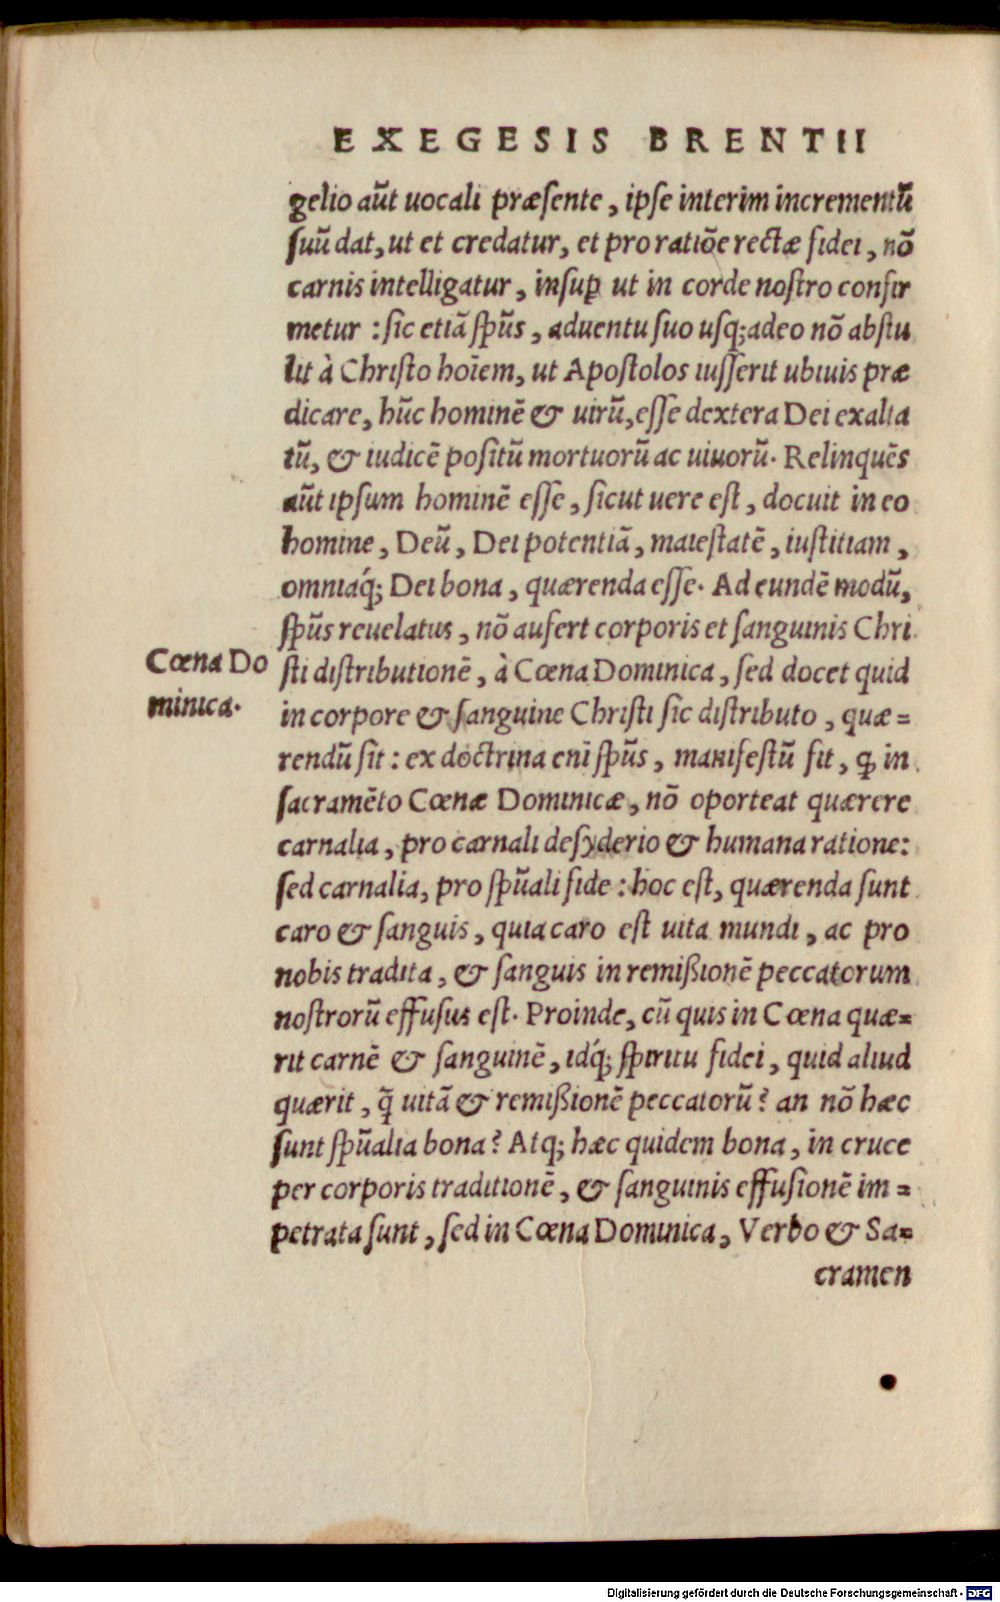 EXEGESIS BRENTII
gelio aūt uocali præsente, ipse interim incrementū
suū dat, ut et credatur, et pro ratiōe rectæ fidei, nō
carnis intelligatur, insuꝑ ut in corde nostro confir
metur : sic etiā spūs, aduentu suo usq; adeo nō abstu
lit à Christo hoīem, ut Apostolos iusserit ubiuis præ
dicare, hūc hominē & uirū, esse dextera Dei exalta
tū, & iudicē positū mortuorū ac uiuorū. Relinquēs
aūt ipsum hominē esse, sicut uere est, docuit in eo
homine, Deū, Dei potentiā, maiestatē, iustitiam,
omniaq́; Dei bona, quærenda esse. Ad eundē modū,
spūs reuelatus, nō aufert corporis et sanguinis Chri
Cœna Do
minica.
sti distributionē, à Cœna Dominica, sed docet quid
in corpore & sanguine Christi sic distributo, quæ=
rendū sit : ex doctrina enī spūs, manifestū fit, ꝙ in
sacramēto Cœnæ Dominicæ, nō oporteat quærere
carnalia, pro carnali desyderio & humana ratione:
sed carnalia, pro spūali fide : hoc est, quærenda sunt
caro & sanguis, quia caro est uita mundi, ac pro
nobis tradita, & sanguis in remißionē peccatorum
nostrorū effusus est. Proinde, cū quis in Cœna quæ=
rit carnē & sanguinē, idq́; spiritu fidei, quid aliud
quærit, q̃ uitā & remißionē peccatorū? an nō hæc
sunt spūalia bona? Atq; hæc quidem bona, in cruce
per corporis traditionē, & sanguinis effusionē im=
petrata sunt, sed in Cœna Dominica, Verbo & Sa=
cramen
Digitalisierung gefördert durch die Deutsche Forschungsgemeinschaft - DFG